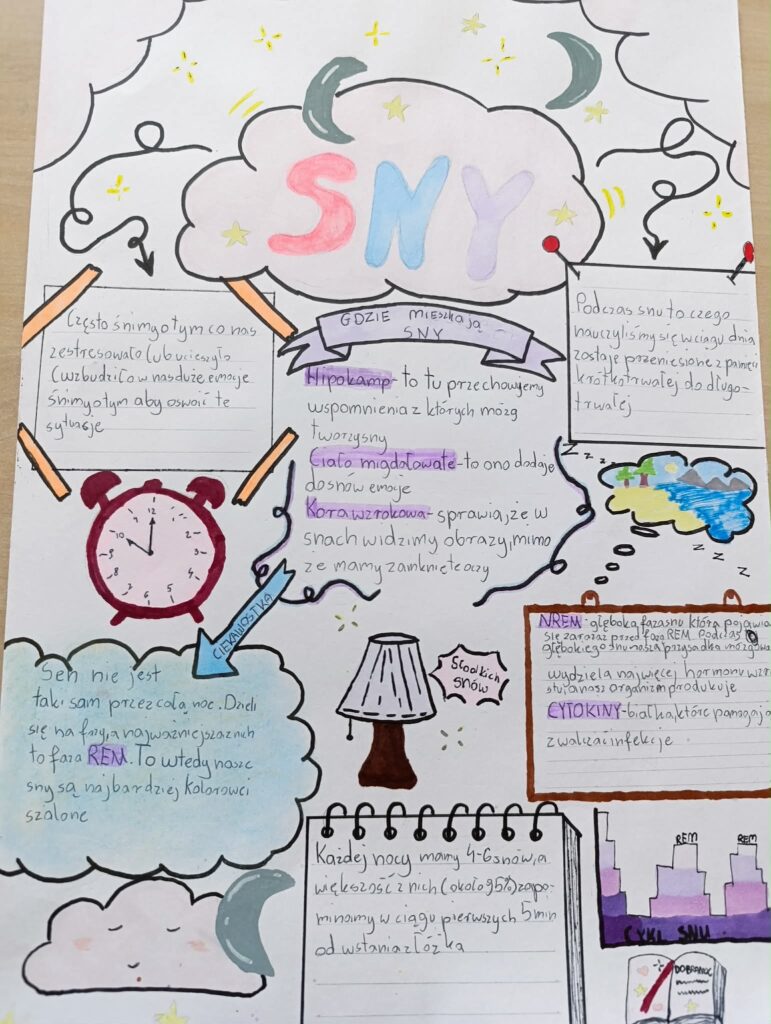 SNY
Często śnimy o tym co nas
zestresowało lub ucieszyło
(wzbudziło w nas duże emocje
śnimy o tym aby oswoić te
sytuacje
GDZIE MIESZKAJĄ
SNY
Hipokamp - to tu przechowujemy
wspomnienia z których mózg
tworzy sny
Ciało migdałowate - to ono dodaje
do snów emocje
Kora wzrokowa - sprawia, że w
snach widzimy obrazy, mimo
że mamy zamknięte oczy
Podczas snu to czego
nauczyliśmy się w ciągu dnia
zostaje przeniesione z pamięci
krótkotrwałej do długo-
trwałej
z z z
z z z z
12
1
2
3
4
5
6
7
8
9
10
11
CIEKAWOSTKA
Sen nie jest
taki sam przez całą noc. Dzieli
się na fazy, a najważniejsza z nich
to faza REM. To wtedy nasze
sny są najbardziej kolorowe i
szalone
Słodkich
snów
NREM - głęboka faza snu która pojawia
się zaraz przed fazą REM. Podczas
głębokiego snu nasza przysadka mózgowa
wydziela najwięcej hormonu wzro
stu, a nasz organizm produkuje
CYTOKINY - białka, które pomagają
zwalczać infekcje
Każdej nocy mamy 4-6 snów, a
większość z nich (około 95%) zapo-
minamy w ciągu pierwszych 5 min
od wstania z łóżka
REM
REM
CYKL SNU
DOBRANOC